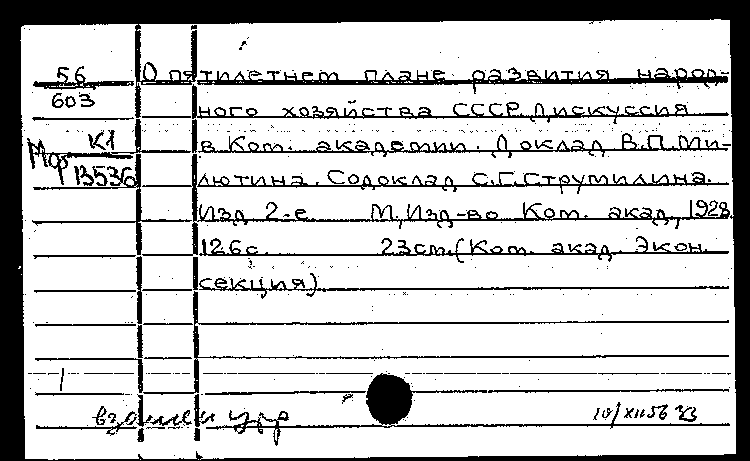 56
603
К1
Мор 13536
О пятилетнем плане развития народ-
ного хозяйства СССР. Дискуссия
в Ком. академии. Доклад В.П.Ми-
лютина. Содоклад С.Г.Струмилина.
Изд 2-е М, Изд-во Ком. акад, 1928
126с. 23см.(Ком. акад. Экон.
секция)
взамен утр
10/XII 56